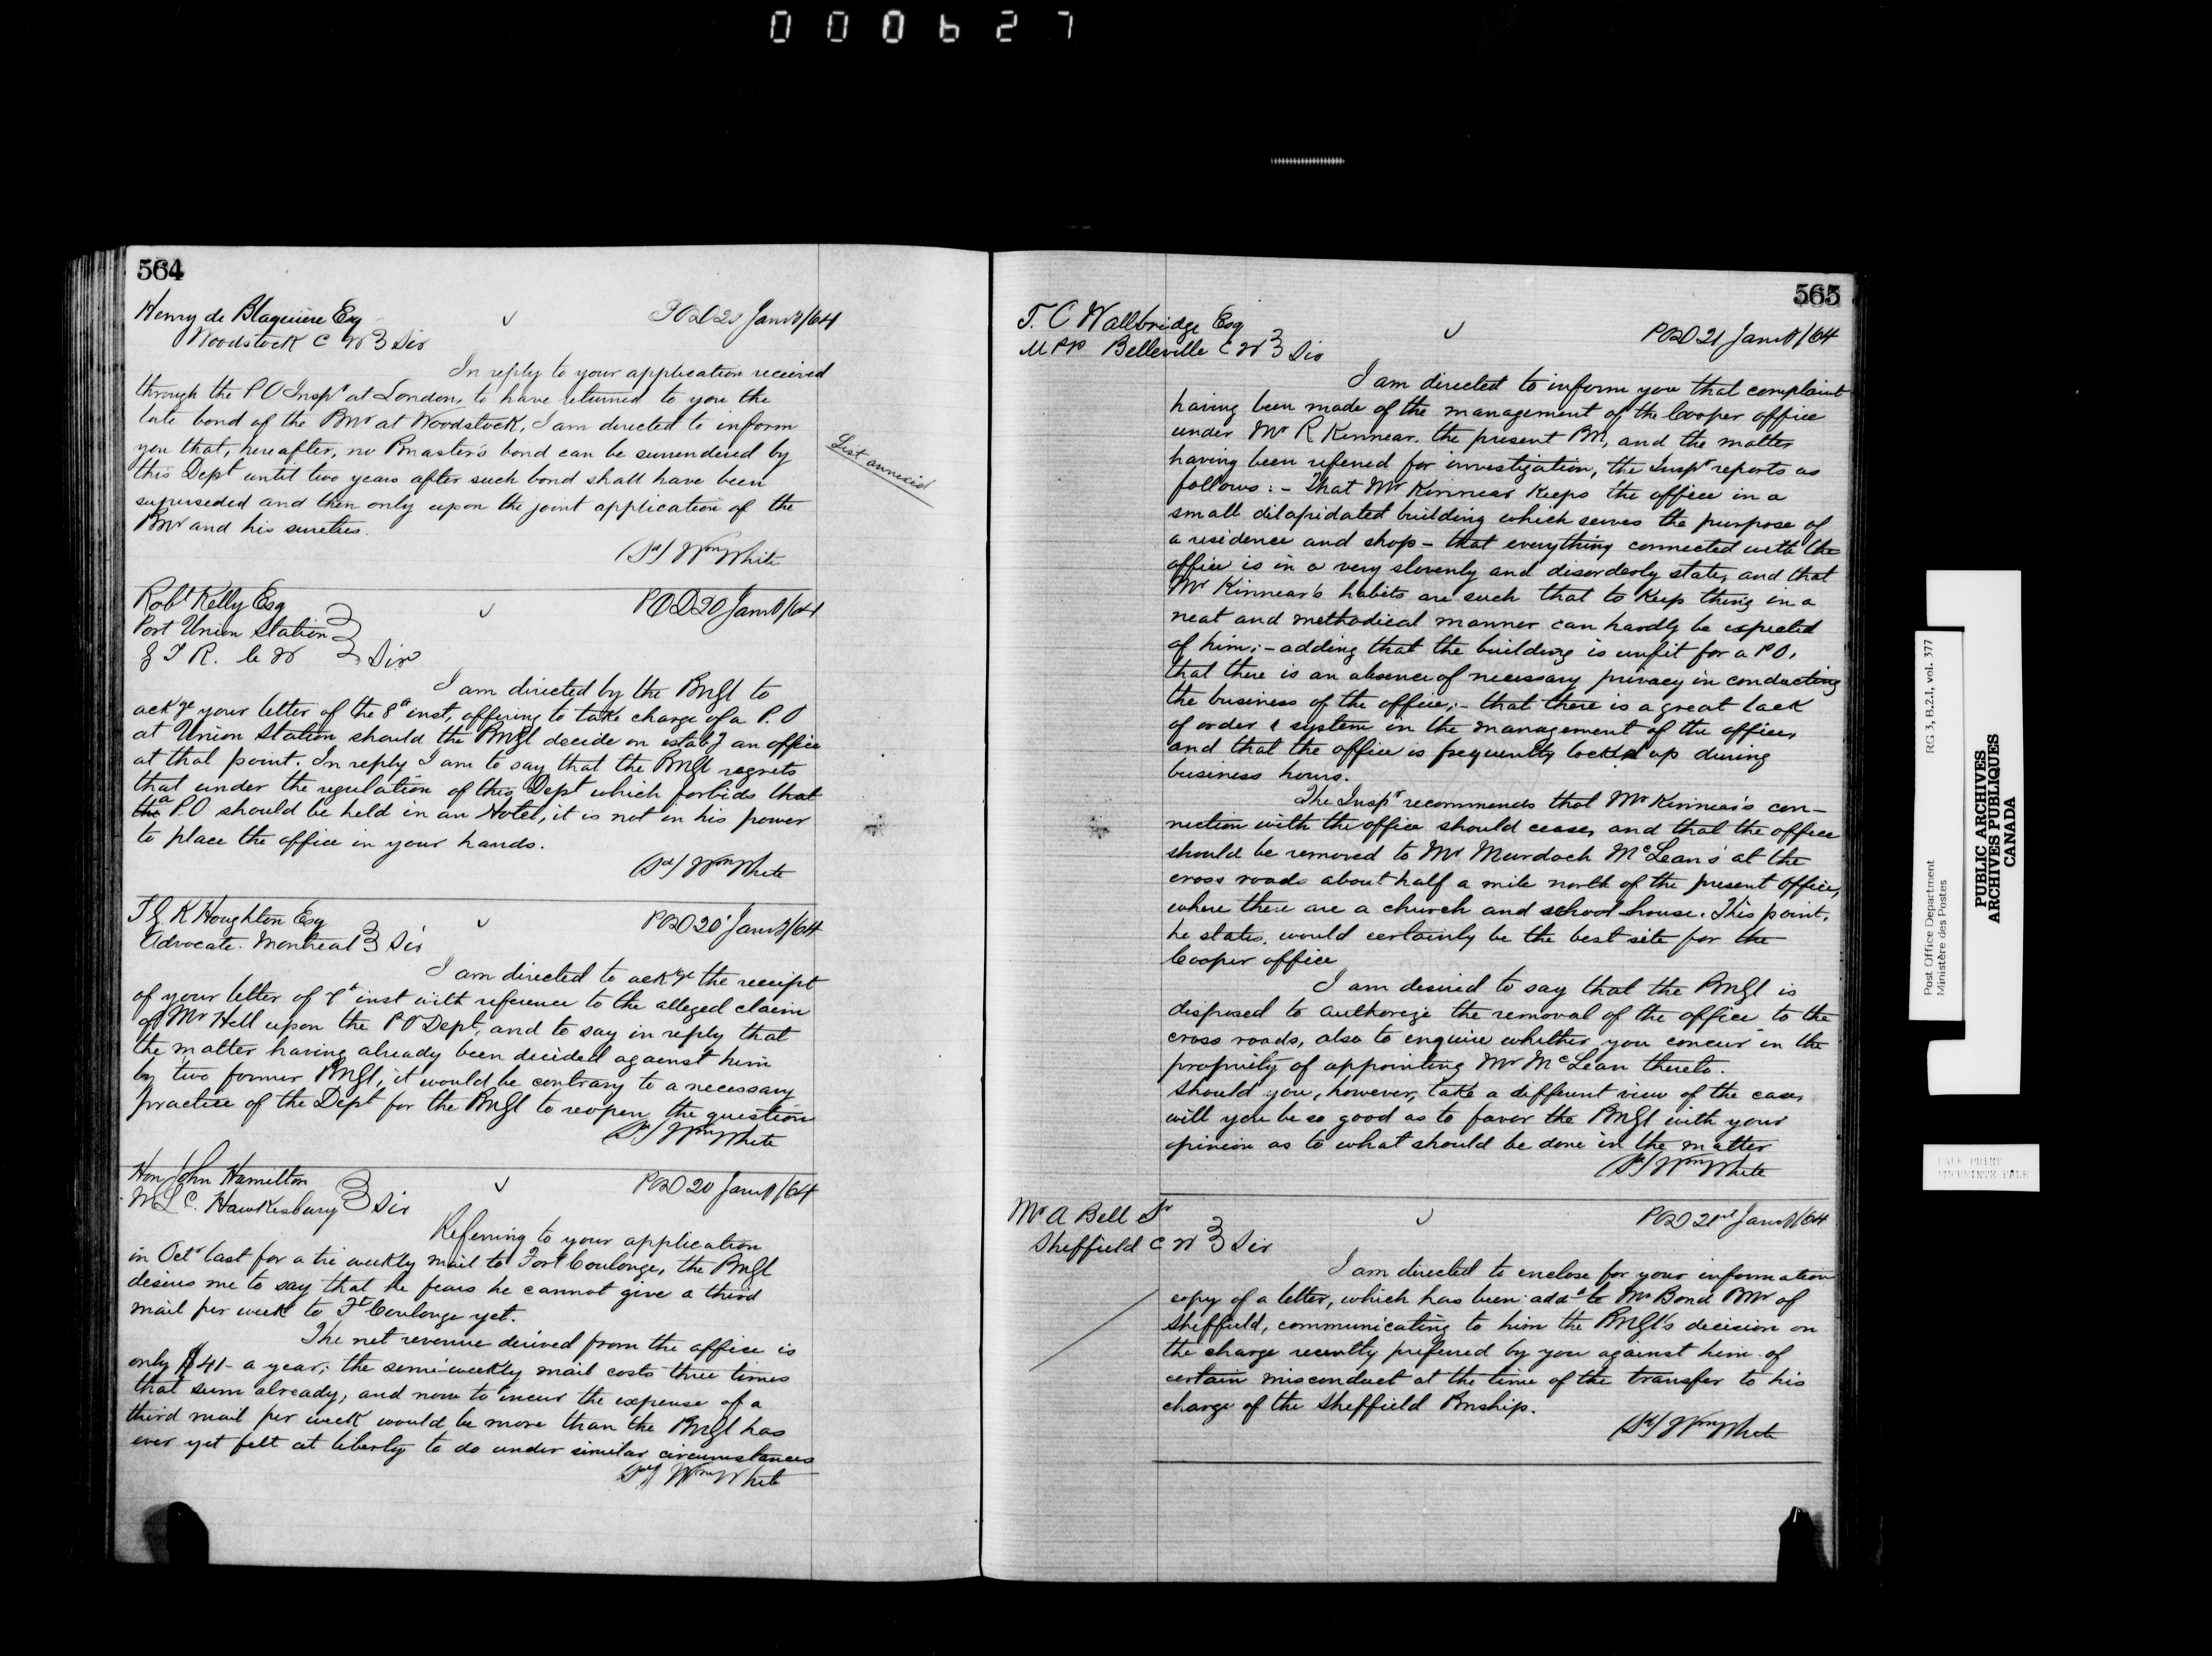 000627
564
Henry de Blaquiere Esq
Woodstock C W } Sir
POD 20 Jany/64
In reply to your application received
through the P O Inspr at London, to have returned to you the
late bond of the Pmr at Woodstock, I am directed to inform
you that, hereafter, no Pmaster's bond can be surrendered by
this Dept until two years after such bond shall have been
superseded and then only upon the joint application of the
Pmr and his sureties.
(Sd) Wm White
List annexed
Robt Kelly Esq
Port Union Station
G T R. C W } Sir
POD 20 Jany/64
I am directed by the PMGl to
ackge your letter of the 8th inst, offering to take charge of a P. O
at Union Station should the PMGl decide on estabg an office
at that point. In reply I am to say that the PMGl regrets
that under the regulation of this Dept which forbids that
the a P.O should be held in an Hotel, it is not in his power
to place the office in your hands.
(Sd) Wm White
T G K Houghton Esq
Advocate. Montreal } Sir
POD 20 Jany/64
I am directed to ackge the receipt
of your letter of inst with reference to the alleged claim
of Mr Hell upon the P O Dept, and to say in reply that
the matter having already been decided against him
by two former PMGl, it would be contrary to a necessary
practice of the Dept for the PMGl to reopen the question
(Sd) Wm White
Hon John Hamilton
M L C. Hawkesbury } Sir
POD 20 Jany/64
Referring to your application
in Octr last for a tri weekly mail to Fort Coulonge, the PMGl
desires me to say that he fears he cannot give a third
mail per week to Ft Coulonge yet.
The net revenue derived from the office is
only $41- a year; the semi-weekly mail costs three times
that sum already, and now to incur the expense of a
third mail per week would be more than the PMGl has
ever yet felt at liberty to do under similar circumstances
(Sd) Wm White
565
T. C Wallbridge Esq
M P P Belleville C W } Sir
POD 21 Jany/64
I am directed to inform you that complaint
having been made of the management of the Cooper office
under Mr R Kinnear. the present Pm, and the matter
having been referred for investigation, the Inspr reports as
follows: - That Mr Kinnear keeps the office in a
small dilapidated building which serves the purpose of
a residence and shop - that everything connected with the
office is in a very slovenly and disorderly state, and that
Mr Kinnear's habits are such that to keep thing in a
neat and methodical manner can hardly be expected
of him; - adding that the building is unfit for a P O,
that there is an absence of necessary privacy in conducting
the business of the office; - that there is a great lack
of order & system in the management of the office,
and that the office is frequently locked up during
business hours.
The Inspr recommends that Mr Kinnear's con-
nection with the office should cease, and that the office
should be removed to Mr Murdoch McLean's at the
cross roads about half a mile north of the present office,
where there are a church and school house. This point,
he states, would certainly be the best site for the
Cooper office
I am desired to say that the PMGl is
disposed to authorize the removal of the office to the
cross roads, also to enquire whether you concur in the
propriety of appointing Mr McLean thereto.
Should you, however, take a different view of the case,
will you be so good as to favor the PMGl with your
opinion as to what should be done in the matter
(Sd) Wm White
Mr A Bell Sr
Sheffield C W } Sir
POD 21st Jany/64
I am directed to enclose for your information
copy of a letter, which has been addd to Mr Bond Pmr of
Sheffield, communicating to him the PMGl's decision on
the charge recently preferred by you against him of
certain misconduct at the time of the transfer to his
charge of the Sheffield Pmship.
(Sd) Wm White
Post Office Department
Ministère des Postes
RG 3, B.2.I, vol. 377
PUBLIC ARCHIVES
ARCHIVES PUBLIQUES
CANADA